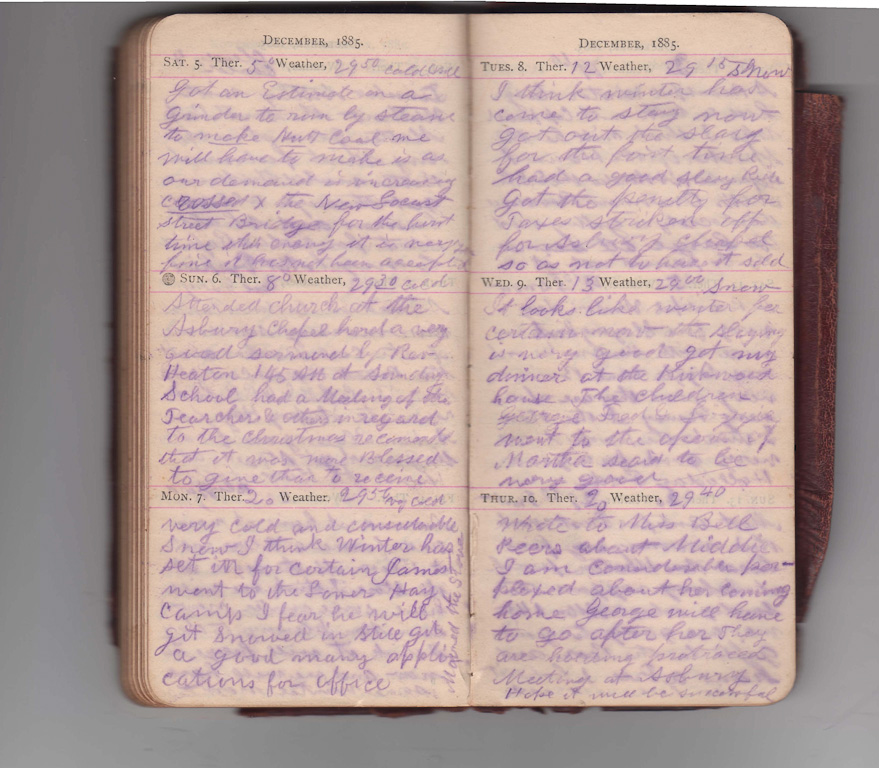 DECEMBER, 1885.
SAT. 5. Ther. 5° Weather, 29 50 cold
Got an Estimate on a
grinder to run by steam
to make Nutt Coal we
will have to make is as
our demand is increasing
crossed x the New Locust
street Bridge for the first
time this evening it is very
fine it has not been accepted
SUN. 6. Ther. 8° Weather, 29 30 cold
Attended church at the
Asbury Chapel herd a very
good sermond by Rev
Heaton 145 Att at Sunday
School had a Meeting of the
Teachers & others in regard
to the Christmas
that it was more Blessed
to give than to receive
MON. 7. Ther. 20 Weather. 29 50 cold
very cold and considerable
Snow I think Winter has
set in for certain James
went to the Hay
Camps I fear he will
git Snowed in Still git
a good many appli
cations for office
Moved the Stove
DECEMBER, 1885.
TUES. 8. Ther. 12 Weather, 29 15 Snow
I think winter has
come to stay now
got out the slay
for the first time
had a good slay Ride
Got the penelty for
Taxes striken off
for Asbury Chapel
so as not to have it sold
WED. 9. Ther. 13 Weather, 29 00 Snow
It looks like winter for
certain now the slaying
is very good got my
dinner at the Kirkwood
house The children
George Fred &
went to the opera of
Martha seard to be
very good
THUR. 10. Ther. 20 Weather, 29 40
Wrote to Miss Bell
Peers about Middie
I am considerber per-
plexed about her coming
home George will have
to go after her They
are holding protraced
Meeting at Asbury
Hope it will be sucessful